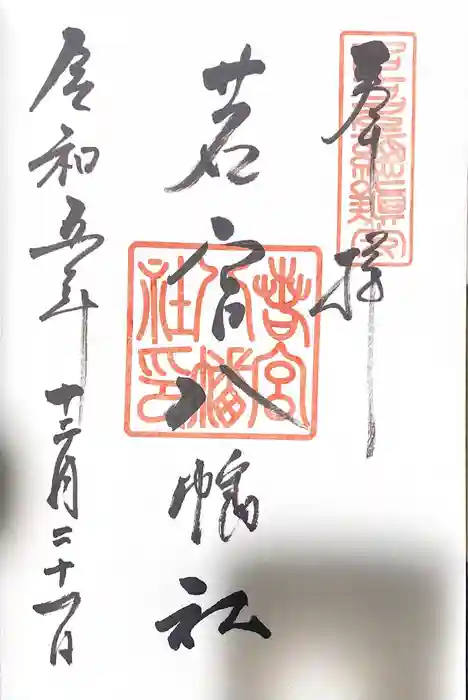 奉拝
若宮八幡社
若宮八幡社印
令和五年十二月二十一日